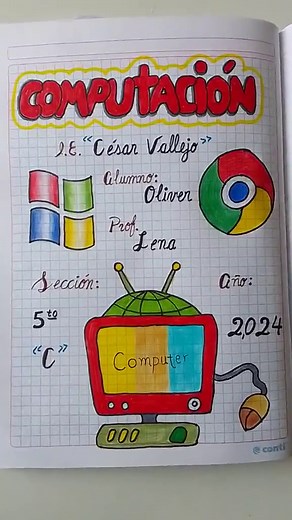 COMPUTACIÓN
I.E. "César Vallejo"
Alumno:
Oliver
Prof.
Lena
Sección:
Año:
5to
2,024
"C"
Computer
@ conti